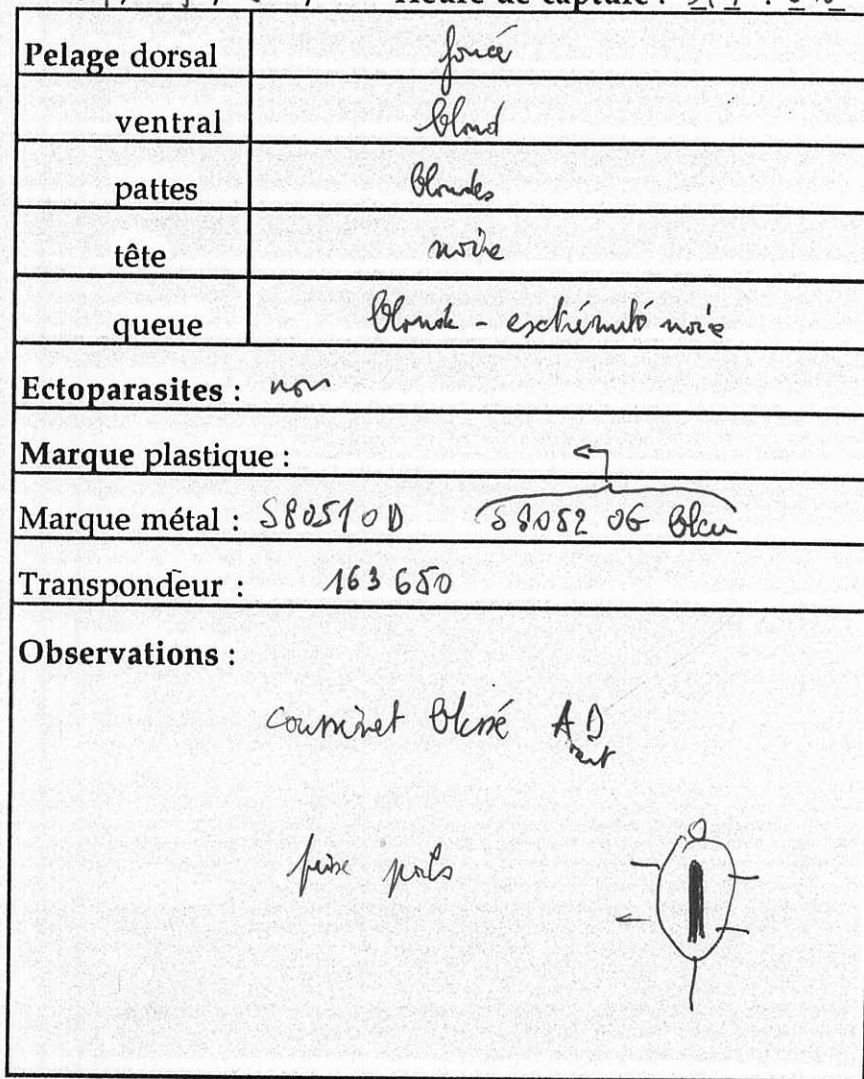 Heure de capture :
Pelage dorsal foncé
ventral blond
pattes blondes
tête noire
queue blonde - extrémité noire
Ectoparasites : non
Marque plastique :
Marque métal : S80510D S8052 OG bleu
Transpondeur : 163650
Observations :
coussinet blessé A D
ant
prise poils